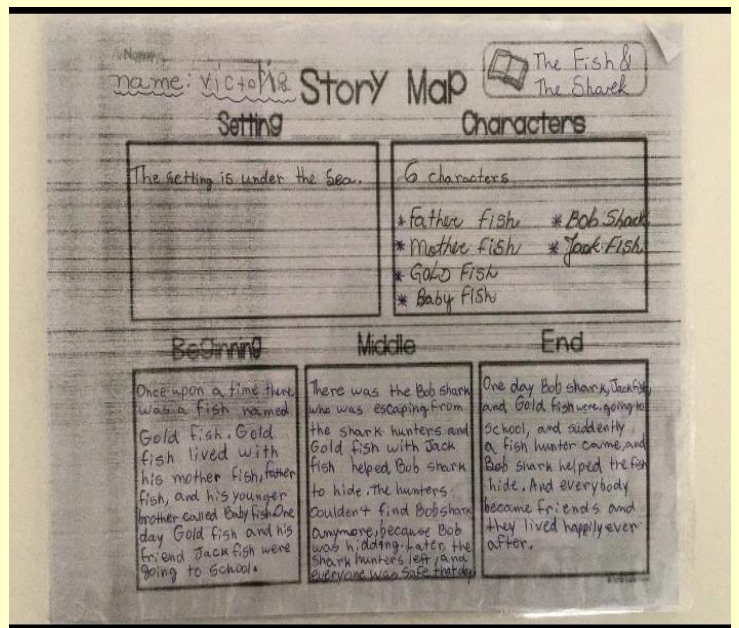 Name
name: Victoria
Story Map
The Fish &
The Shark
Setting
The setting is under the Sea.
Characters
6 characters
* Father fish
* Mother fish
* GOLD Fish
* Baby Fish
* Bob Shark
* Jack Fish
Beginning
Once upon a time there
was a fish named
Gold fish. Gold
fish lived with
his mother fish, father
fish, and his younger
brother called Baby fish. One
day Gold fish and his
friend Jack fish were
going to school.
Middle
There was the Bob shark
who was escaping from
the shark hunters and
Gold fish with Jack
fish helped Bob shark
to hide. The hunters
couldn't find Bob shark
anymore, because Bob
was hidding. Later the
shark hunters left, and
everyone was safe that day
End
One day Bob shark, Jack fish,
and Gold fish were going to
school, and suddently
a fish hunter came, and
Bob shark helped the fish
hide. And everybody
became friends and
they lived happily ever
after.